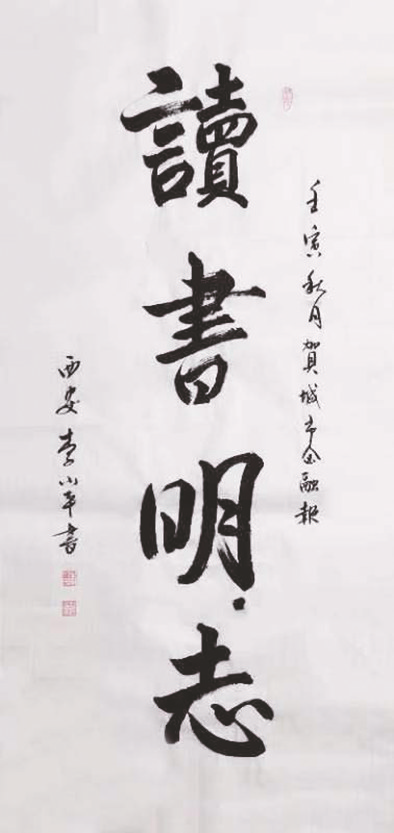 壬寅秋月賀城市金融報
讀書明志
西安李小平書